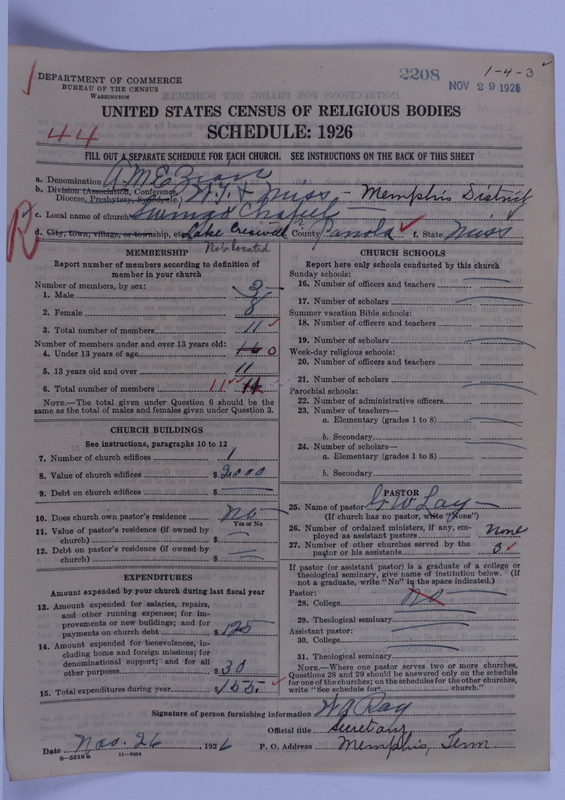 2208
1-4-3
DEPARTMENT OF COMMERCE
BUREAU OF THE CENSUS
WASHINGTON
NOV 29 1926
UNITED STATES CENSUS OF RELIGIOUS BODIES
SCHEDULE: 1926
44
FILL OUT A SEPARATE SCHEDULE FOR EACH CHURCH. SEE INSTRUCTIONS ON THE BACK OF THIS SHEET
a. Denomination A.M.E. Zion
b. Division (Association, Conference, Diocese, Presbytery, Synod, etc.) W.T. & Miss - Memphis District
c. Local name of church Chapel
d. City, town, village, or township, etc. Lake County Panola f. State Miss
R
Not located
MEMBERSHIP
Report number of members according to definition of
member in your church
Number of members, by sex:
1. Male 3
2. Female 8
3. Total number of members 11
Number of members under and over 13 years old:
4. Under 13 years of age 0
5. 13 years old and over 11
6. Total number of members 11 11
NOTE.—The total given under Question 6 should be the
same as the total of males and females given under Question 3.
CHURCH BUILDINGS
See instructions, paragraphs 10 to 12
7. Number of church edifices 1
8. Value of church edifices $2000
9. Debt on church edifices $
10. Does church own pastor's residence? No
Yes or No
11. Value of pastor's residence (if owned by
church) $
12. Debt on pastor's residence (if owned by
church) $
EXPENDITURES
Amount expended by your church during last fiscal year
13. Amount expended for salaries, repairs,
and other running expenses; for im-
provements or new buildings; and for
payments on church debt $125
14. Amount expended for benevolences, in-
cluding home and foreign missions; for
denominational support; and for all
other purposes $30
15. Total expenditures during year $155.
CHURCH SCHOOLS
Report here only schools conducted by this church
Sunday schools:
16. Number of officers and teachers
17. Number of scholars
Summer vacation Bible schools:
18. Number of officers and teachers
19. Number of scholars
Week-day religious schools:
20. Number of officers and teachers
21. Number of scholars
Parochial schools:
22. Number of administrative officers
23. Number of teachers—
a. Elementary (grades 1 to 8)
b. Secondary
24. Number of scholars—
a. Elementary (grades 1 to 8)
b. Secondary
PASTOR
25. Name of pastor G W Lay
(If church has no pastor, write "None")
26. Number of ordained ministers, if any, em-
ployed as assistant pastors None
27. Number of other churches served by the
pastor or his assistants 3
If pastor (or assistant pastor) is a graduate of a college or
theological seminary, give name of institution below. (If
not a graduate, write "No" in the space indicated.)
Pastor:
28. College No
29. Theological seminary
Assistant pastor:
30. College
31. Theological seminary
NOTE.—Where one pastor serves two or more churches,
Questions 28 and 29 should be answered only on the schedule
for one of the churches; on the schedules for the other churches,
write "See schedule for church."
Signature of person furnishing information Ray
Official title Secretary
Date Nov. 26, 1926 P. O. Address Memphis, Tenn
8-5518 a 11-9084